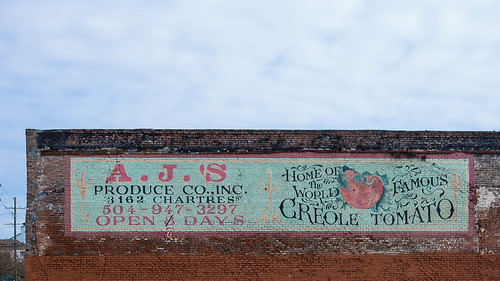 A.J.'S
PRODUCE CO., INC.
3162 CHARTRES ST
504-947-3297
OPEN 7 DAYS
HOME OF
The
WORLD FAMOUS
CREOLE TOMATO